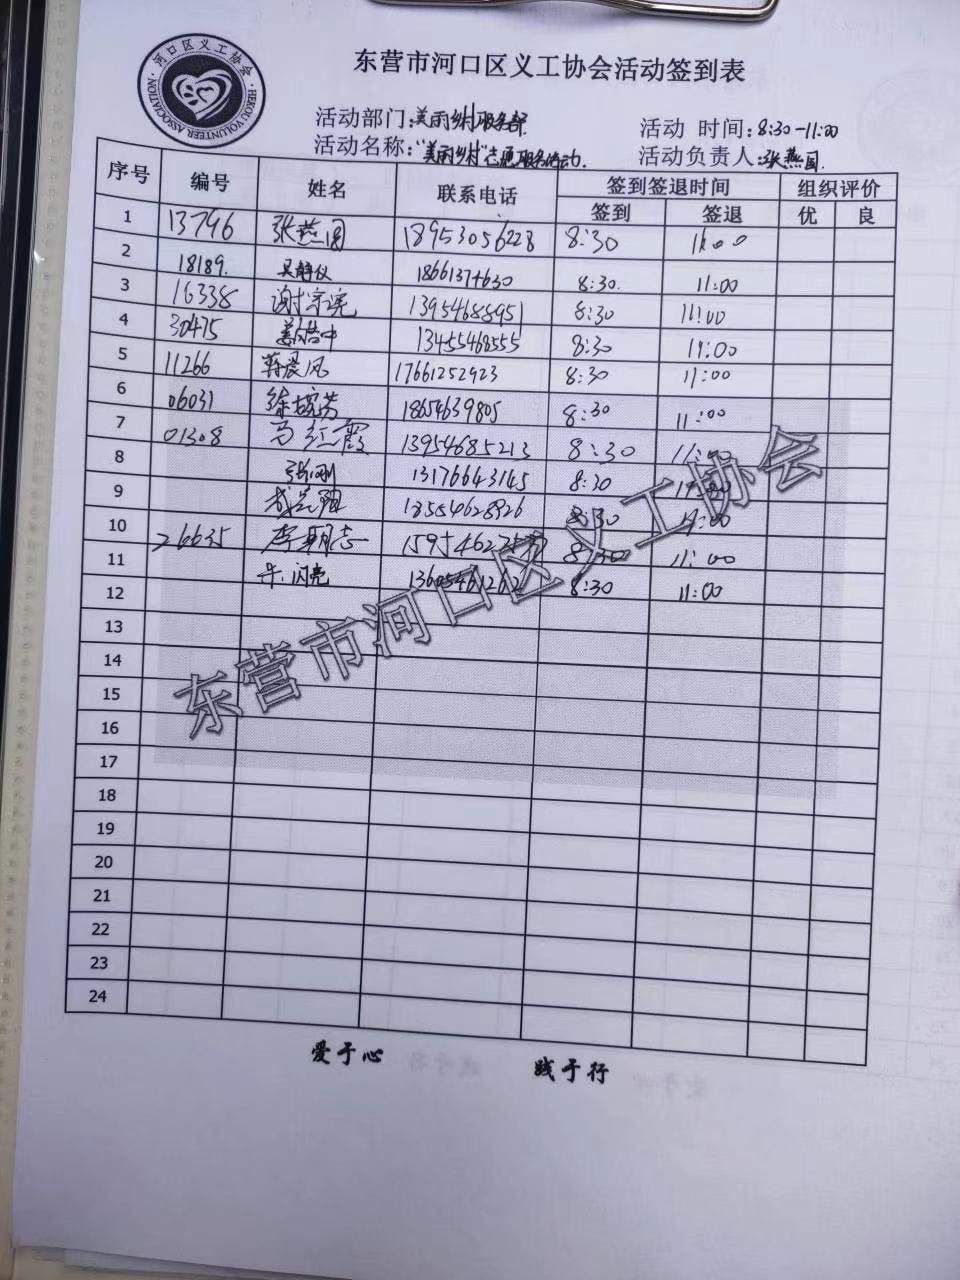 河口区义工协会
HEKOU VOLUNTEER ASSOCIATION
东营市河口区义工协会活动签到表
活动部门:美丽乡村服务部 活动 时间:8:30-11:00
活动名称:"美丽乡村"志愿服务活动. 活动负责人:张燕
序号 编号 姓名 联系电话 签到签退时间 组织评价
签到 签退 优 良
1 13796 张燕 18953056228 8:30 11:00
2 18189. 吴静仪 18661374630 8:30. 11:00
3 16338 谢宗亮 8:30 11:00
4 30475 13455468555 8:30 11:00
5 11266 蒋晨风 17661252923 8:30 11:00
6 06031 徐婉芳 18654639805 8:30 11:00
7 01308 马红霞 13954685213 8:30 11:00
8 张刚 13176643145 8:30
9 8:30 11:00
10 26635 李朝志 8:30 11:00
11 牛闪亮 8:30 11:00
12
13
14
15
16
17
18
19
20
21
22
23
24
东营市河口区义工协会
爱于心 践于行